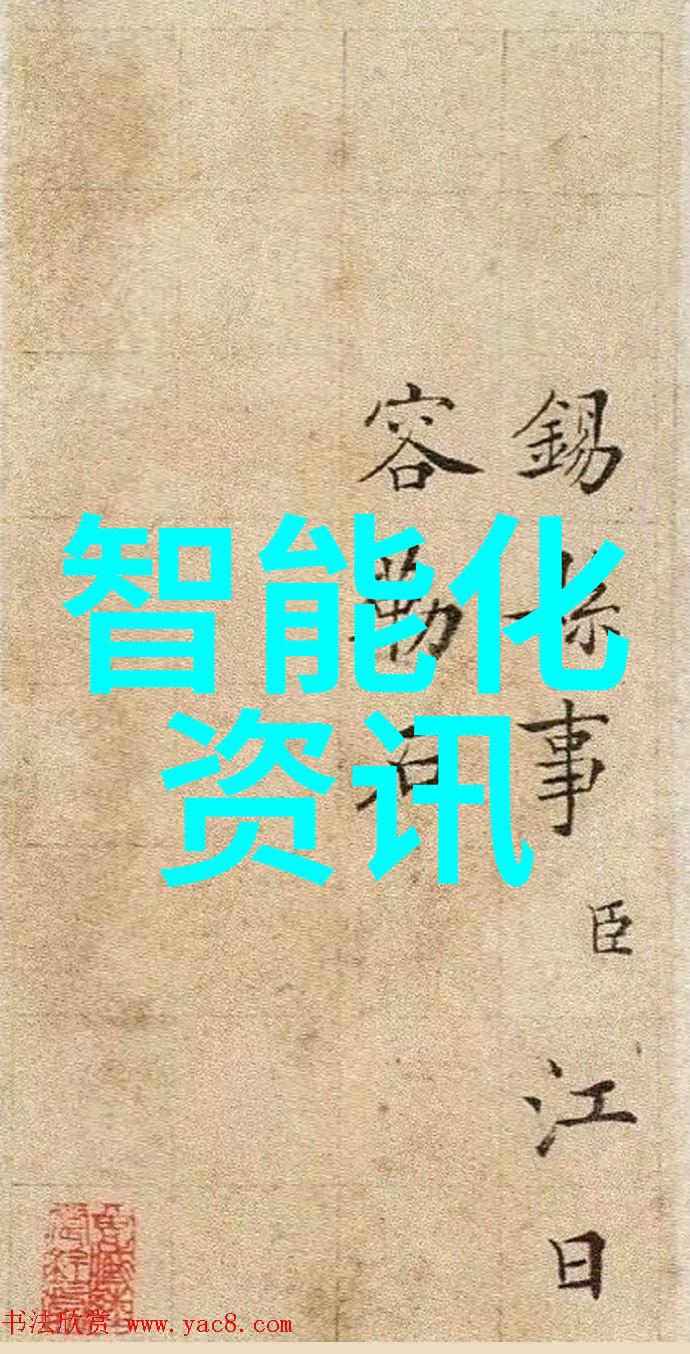 智能化
资讯
錫縣事臣江日
容勒石
书法欣赏 www.yac8.com